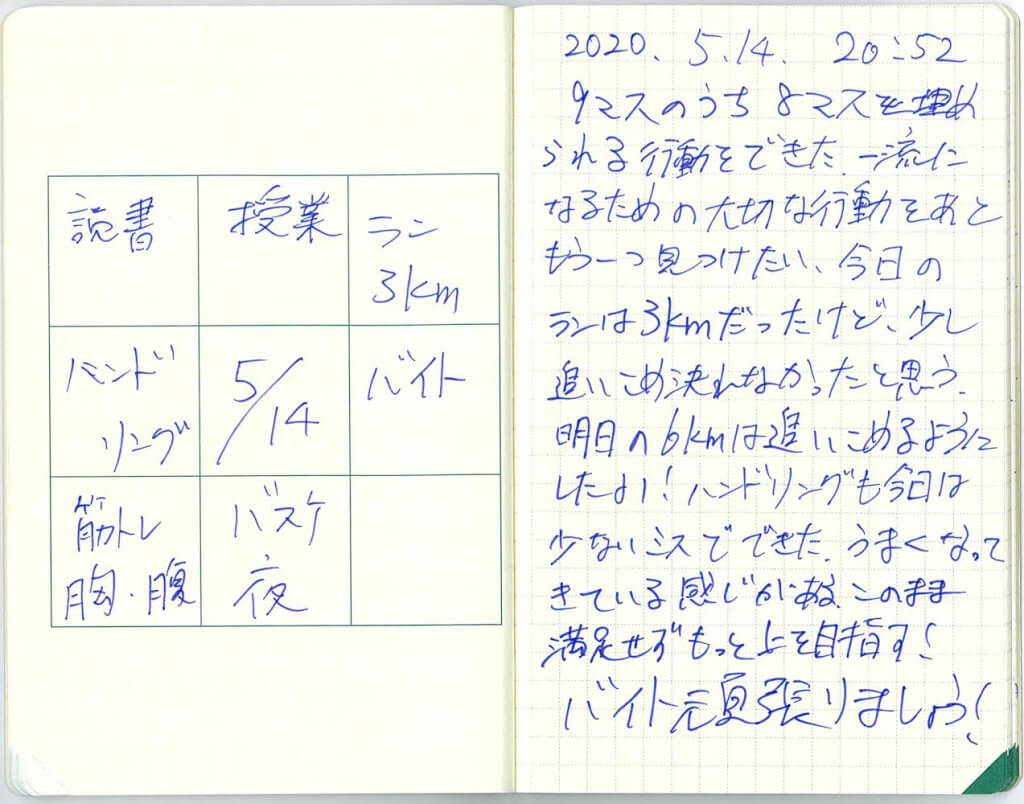 読書
授業
ラン
3km
ハンド
リング
5/14
バイト
筋トレ
胸・腹
バスケ
夜
2020. 5.14. 20:52
9マスのうち8マスを埋め
られる行動をできた.一流に
なるための大切な行動をあと
もう一つ見つけたい、今日の
ランは3kmだったけど、少し
追いこめ決れなかったと思う.
明日の6kmは追いこめるように
したい!ハンドリングも今日は
少ないミスでできた.うまくなって
きている感じがある.このまま
満足せずもっと上を目指す!
バイト頑張りましょう!